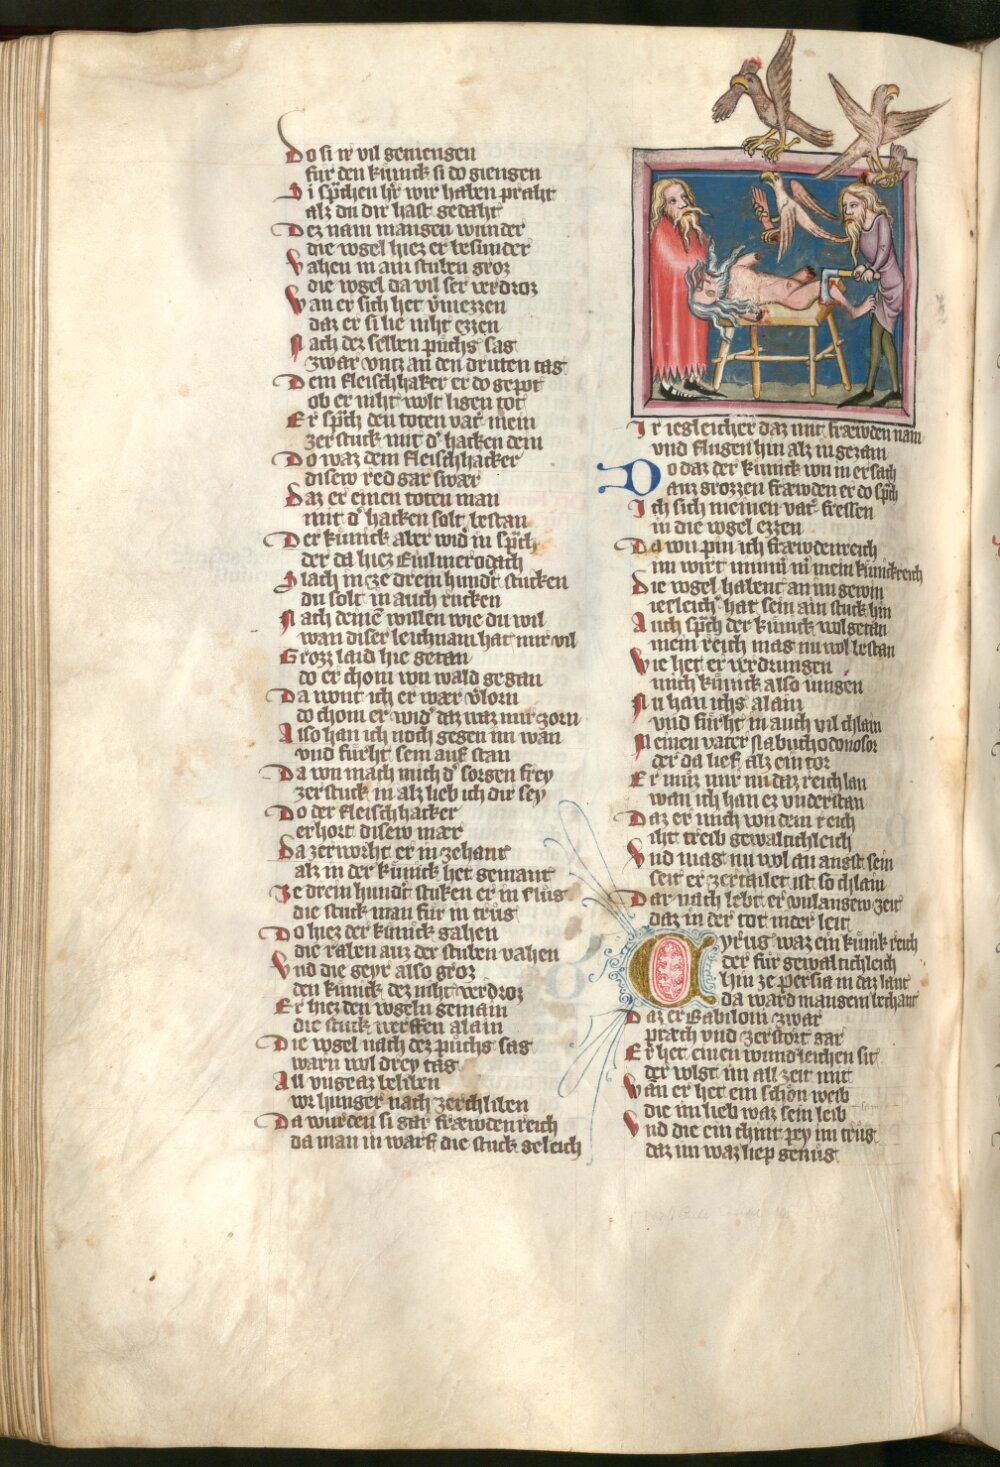 Do si ir vil geniengen
für den künick si do giengen
Si sp̄chen h̄r wir haben praht
als du dir hast gedaht
Dez nam mangen wunder
die vogel hiez er besunder
Vahen in ain stuben groz
die vogel da vil ser verdroz
Wan er sich het v̄mezzen
daz er si lie niht ezzen
Nach dez selben puchs sag
zwar vntz an den dritten tag
Dem fleischhaker er do gepot
ob er niht wolt ligen tot
Er sp̄ch den toten vat̄ mein
zerstuck mit d̄ hacken dein
Do waz dem fleischhacker
disew red gar swær
Daz er einen toten man
mit d̄ hacken solt bestan
Der künick aber wid̄ in sp̄ch
der da hiez Euilmerodach
Slach in ze drein hund̄t stucken
du solt in auch rucken
Nach deinē willen wie du wil
wan diser leichnam hat mir vil
Grozz laid hie getan
do er chom von wald gegan
Da wont ich er wær v̄lorn
do chom er wid̄ daz waz mir zorn
Also han ich noch gegen im wan
vnd fürht sein auf stan
Da von mach mich d̄ sorgen frey
zerstuck in als lieb ich dir sey
Do der fleischhacker
erhort disew mær
Da zerworht er in zehant
als in der künick het gemant
Ze drein hund̄t stuken er in slug
die stuck man für in trug
Do hiez der künick gahen
die raben auz der stuben vahen
Vnd die geyr also groz
den künick dez niht verdroz
Er hiez den vogeln gemain
die stuck werffen alain
Die vogel nach dez puchs sag
warn wol drey tag
All vngeaz beliben
vor hunger nach zerchliben
Da wurden si gar fræwdenreich
da man in warf die stuck geleich
Ir iegleicher daz mit fræwden nam
vnd flugen hin als in gezam
Do daz der künick von in ersach
auz grozzen fræwden er do sp̄ch
Ich sich meinen vat̄ fressen
in die vogel ezzen
Da von pin ich fræwdenreich
im wirt nimm̄ m̄ mein künickreich
Die vogel habent an im gewin
iesleich̄ hat sein ain stuck hin
Auch sp̄ch der künick wolgetan
mein reich mag nu wol bestan
Wie het er verdrungen
mich künick also iungen
Nu han ichs alain
vnd fürht in auch vil chlain
Meinen vater Nabuchodonosor
der da lief als ein tor
Er muz mir nu daz reich lan
wan ich han ez vnderstan
Daz er mich von dem reich
iht treib gewaltichleich
Vnd mag nu wol an angst sein
seit er zertailet ist so chlain
Dar nach lebt er vnlangew zeit
daz in der tot nider leit
Cyrus waz ein künik reich
der für gewaltichleich
hin ze Persia in daz lant
da ward mangem bechant
Daz er Babiloni zwar
præch vnd zerstort gar
Er het einen wundleichen sit
der volgt im all zeit mit
Wan er het ein schön weib
die im lieb waz sein leib
Vnd die ein chint pey im trug
daz im waz liep genug